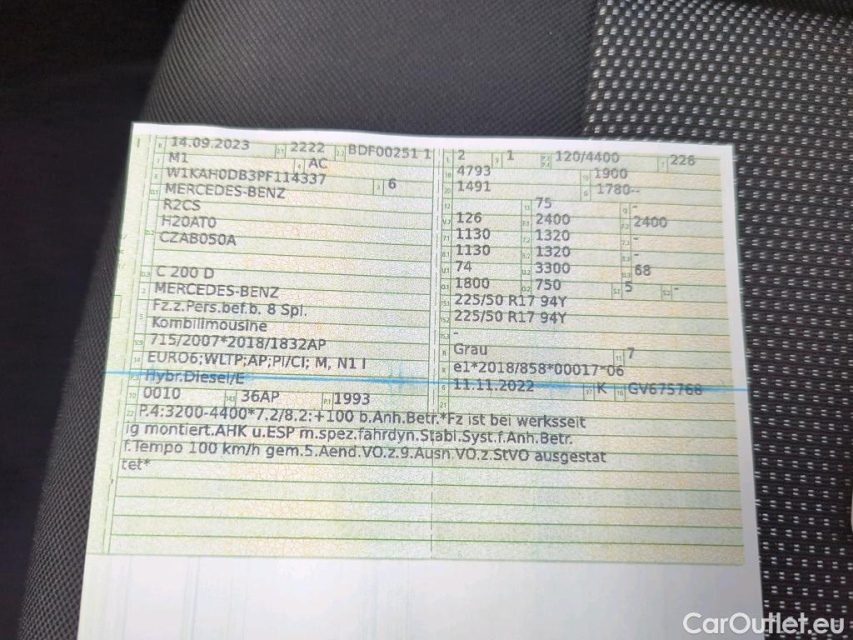 14.09.2023 2222 BDF00251 1
M1 AC
W1KAH0DB3PF114337 6
MERCEDES-BENZ
R2CS
H20AT0
CZAB050A
C 200 D
MERCEDES-BENZ
Fz.z.Pers.bef.b. 8 Spl.
Kombilimousine
715/2007*2018/1832AP
EURO6;WLTP;AP;PI/CI; M, N1 I
Hybr.Diesel/E
0010 36AP 1993
2 1 120/4400 226
4793 1900
1491 1780--
75 -
126 2400 2400
1130 1320 -
1130 1320 -
74 3300 68
1800 750 5 -
225/50 R17 94Y
225/50 R17 94Y
-
Grau 7
e1*2018/858*00017*06
11.11.2022 K GV675768
P.4:3200-4400*7.2/8.2:+100 b.Anh.Betr.*Fz ist bei werksseit
ig montiert.AHK u.ESP m.spez.fahrdyn.Stabi.Syst.f.Anh.Betr.
f.Tempo 100 km/h gem.5.Aend.VO.z.9.Ausn.VO.z.StVO ausgestat
tet*
CarOutlet.eu